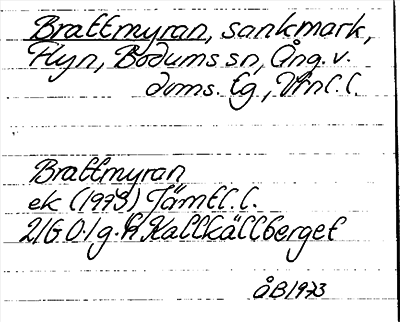 Brattmyran, sankmark,
Flyn, Bodums sn, Ång. v.
doms. tg, Vrnl. l.
Brattmyran
ek (1973) Jämtl. l.
21G 0-1g. h. Kallkällberget
åB 1973